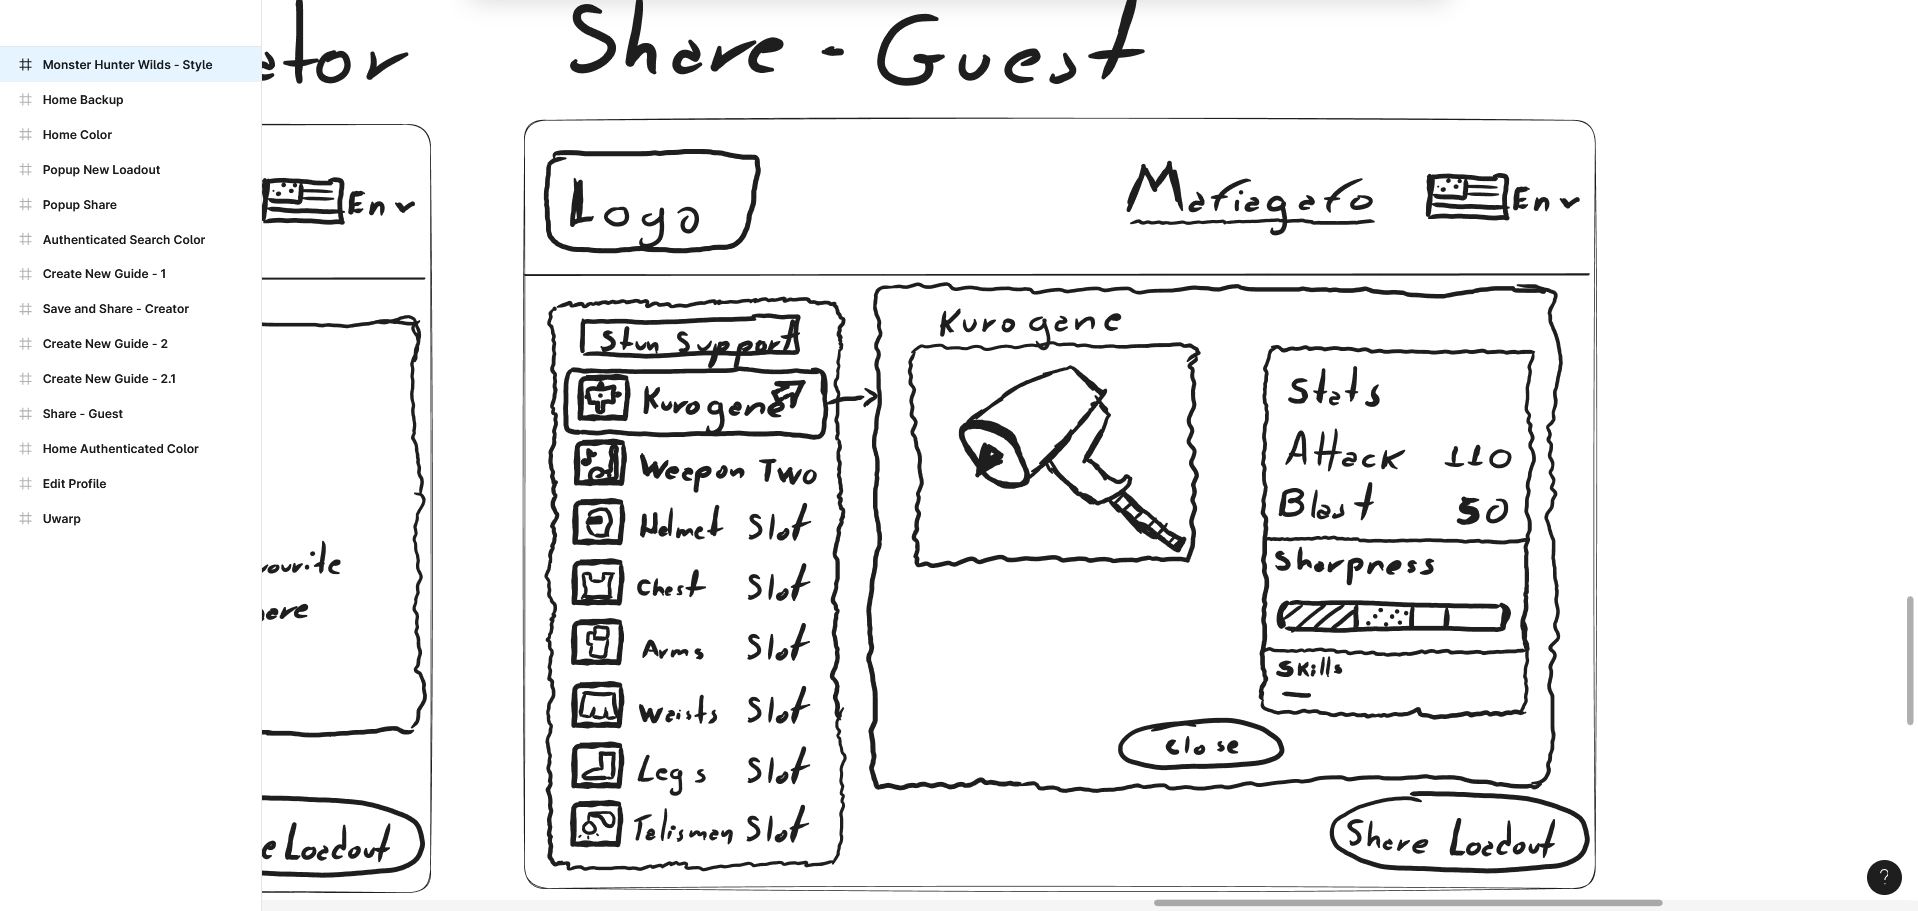 Monster Hunter Wilds - Style
Home Backup
Home Color
Popup New Loadout
Popup Share
Authenticated Search Color
Create New Guide - 1
Save and Share - Creator
Create New Guide - 2
Create New Guide - 2.1
Share - Guest
Home Authenticated Color
Edit Profile
Uwarp
ator
En
vourite
here
e Loadout
Share - Guest
Logo
Mafiagafo
En
Stun Support
Kurogene
Weapon Two
Helmet Slot
Chest Slot
Arms Slot
Waists Slot
Legs Slot
Talisman Slot
Kurogane
Stats
Attack 110
Blast 50
Sharpness
Skills
Close
Share Loadout
?